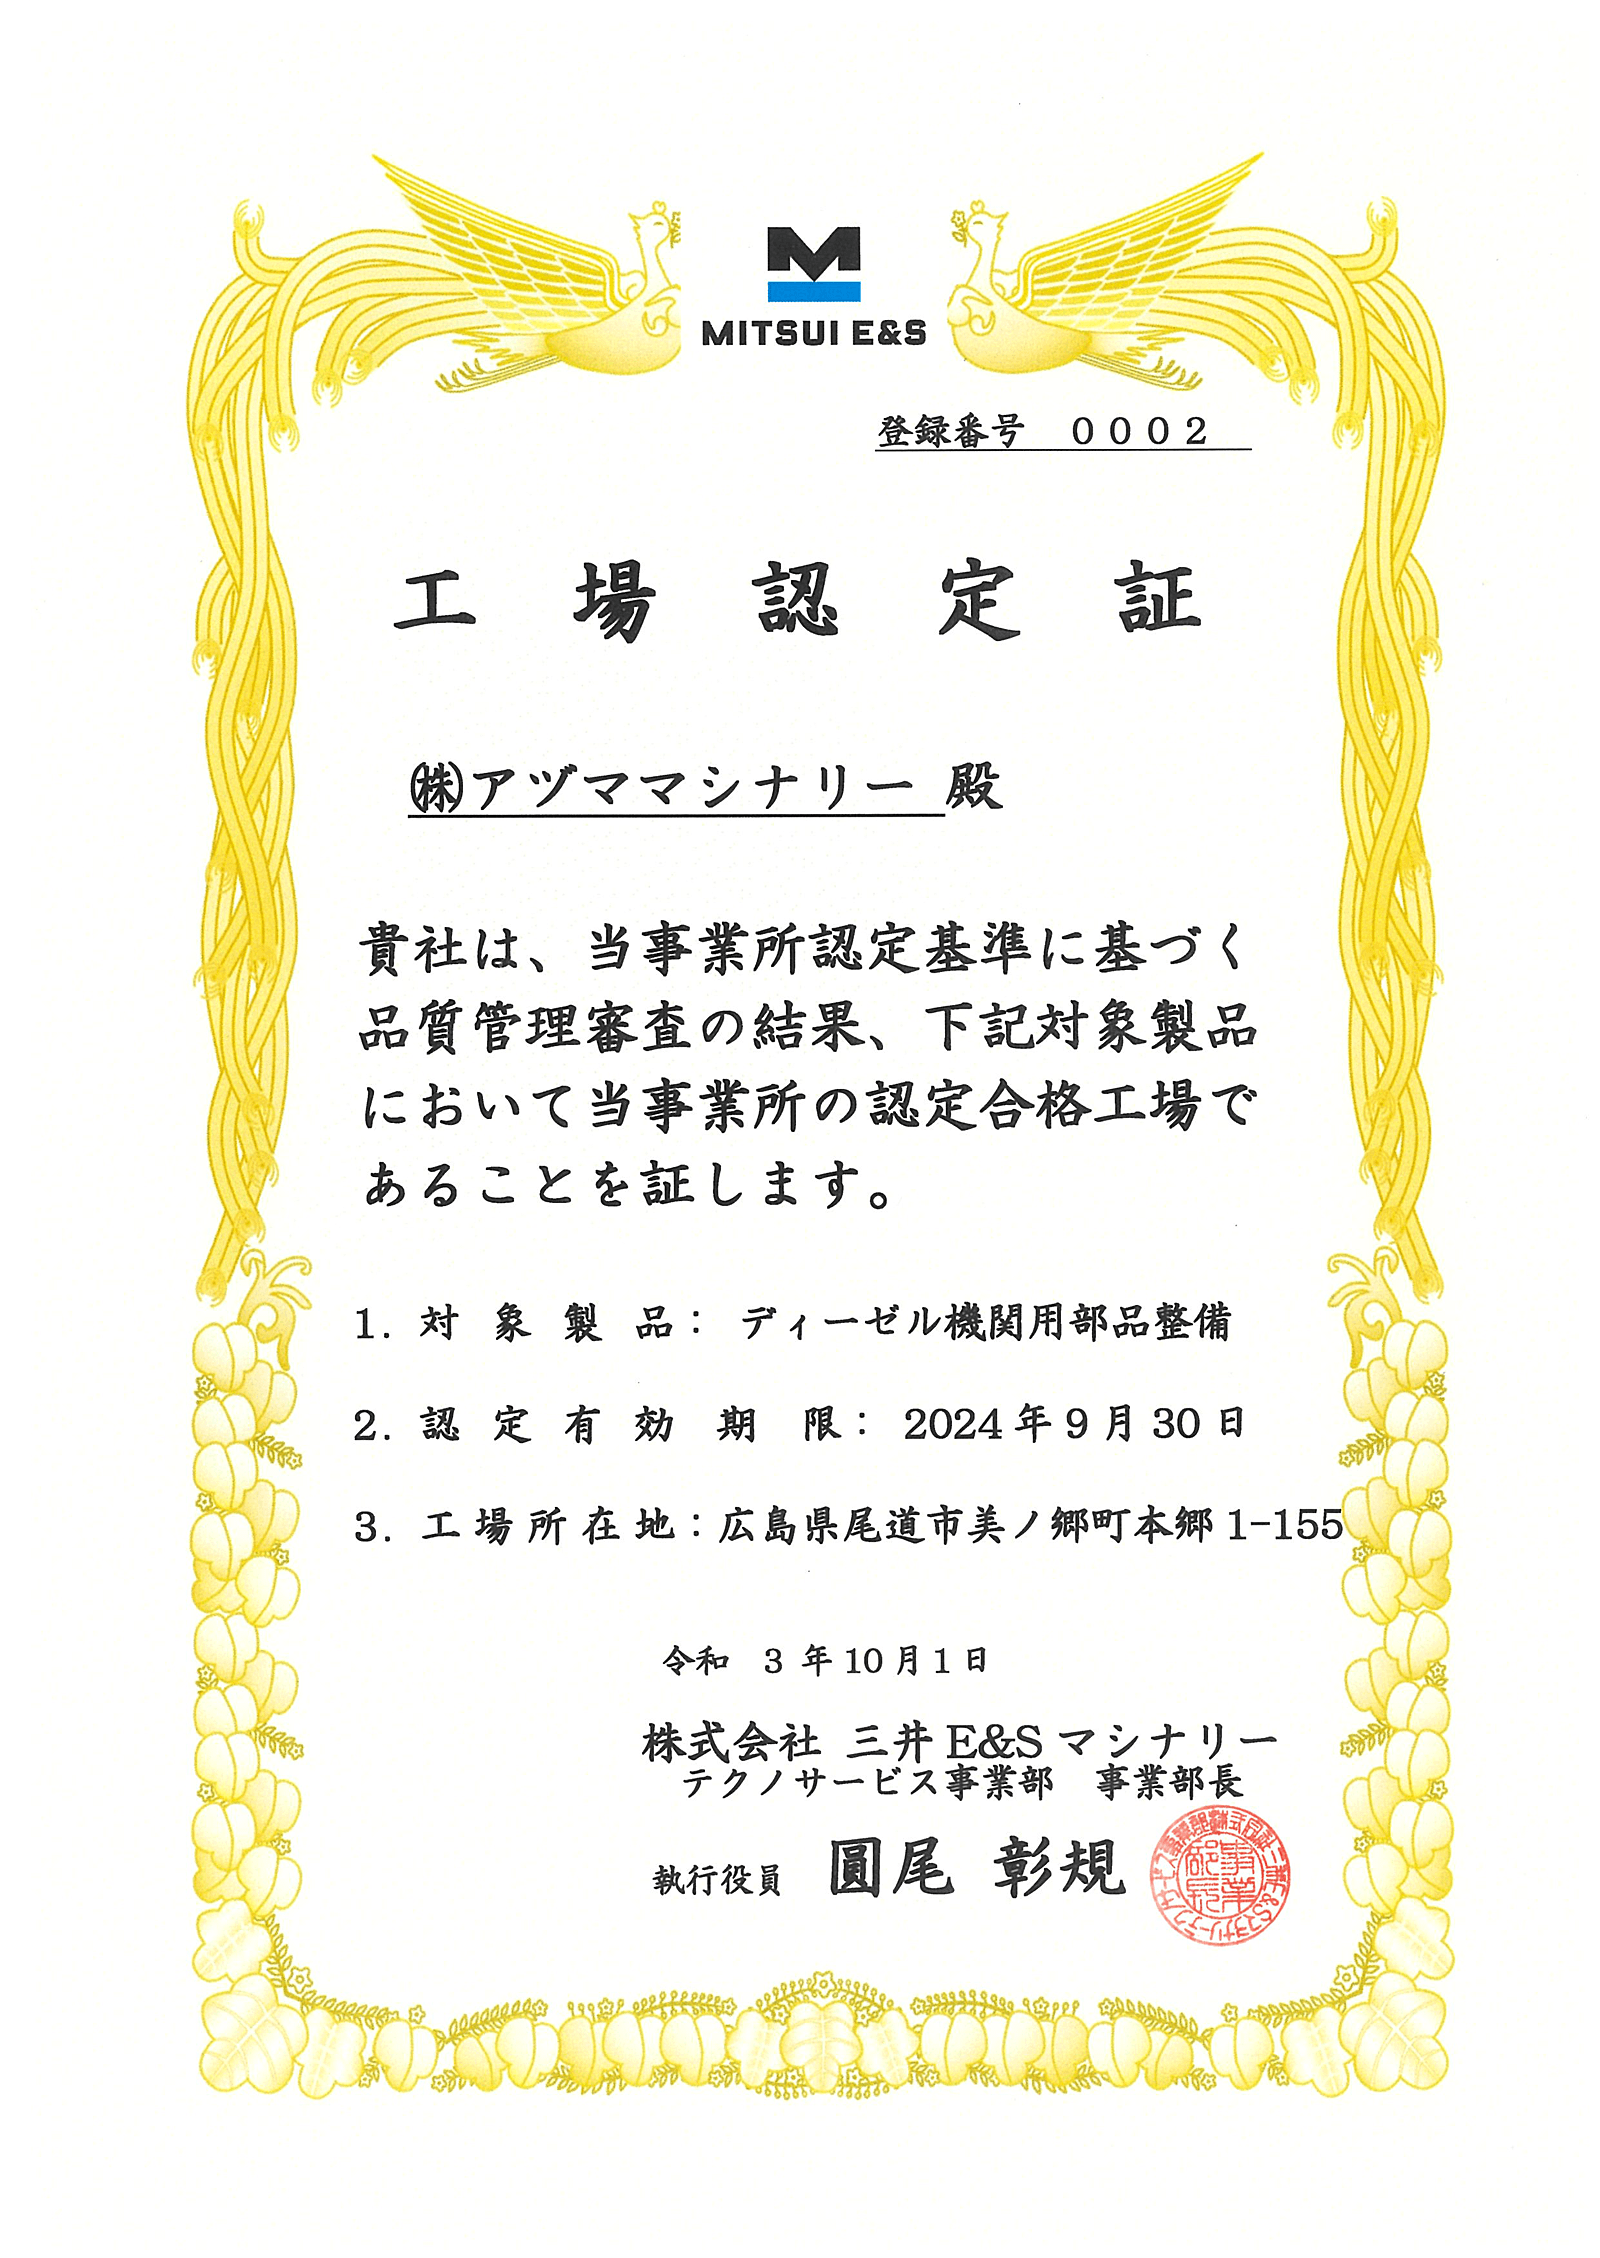 MITSUI E&S
登録番号　０００２
工場認定証
㈱アヅママシナリー 殿
貴社は、当事業所認定基準に基づく
品質管理審査の結果、下記対象製品
において当事業所の認定合格工場で
あることを証します。
1. 対象製品： ディーゼル機関用部品整備
2. 認定有効期限： 2024年9月30日
3. 工場所在地：広島県尾道市美ノ郷町本郷1-155
令和　3 年10月1日
株式会社 三井E&Sマシナリー
テクノサービス事業部　事業部長
執行役員　圓尾 彰規